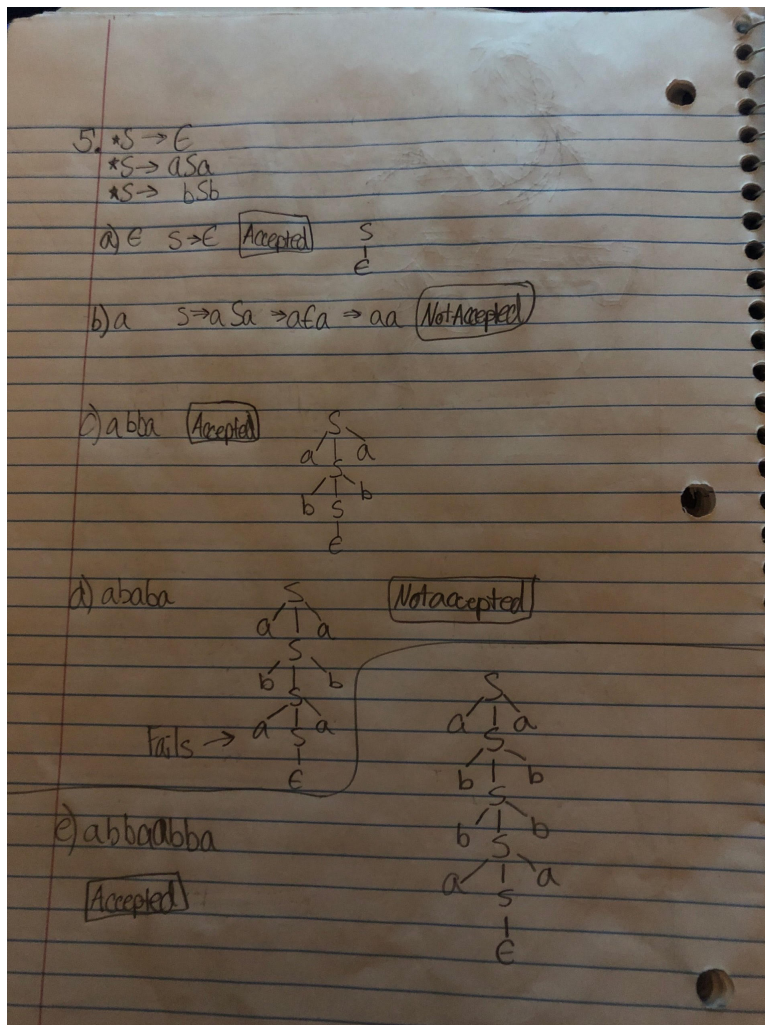 5. *S → Є
*S → aSa
*S → bSb
a) Є S→Є Accepted
S
Є
b) a S→aSa →aЄa → aa Not Accepted
c) abba Accepted
S
a S a
b S b
Є
d) ababa Not accepted
S
a S a
b S b
Fails → a S a
Є
e) abbaabba
Accepted
S
a S a
b S b
b S b
a S a
Є